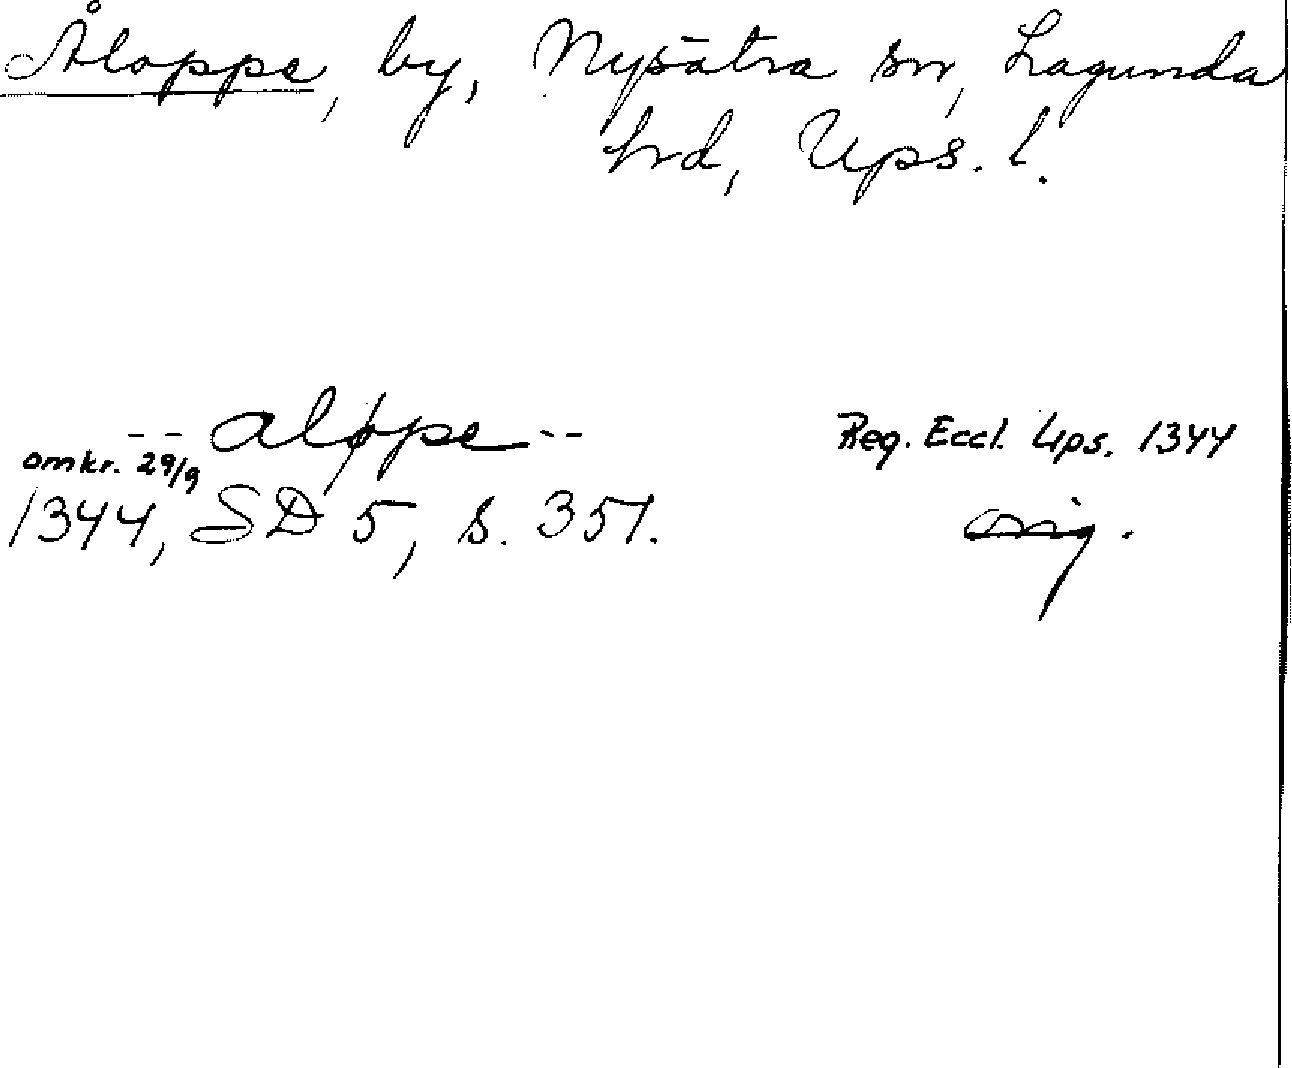 Åloppe, by, Nysätra sn, Lagunda
hrd, Ups. l.
-- aløpe --
Reg. Eccl. Ups. 1344
omkr. 29/9
1344, SD 5, s. 351.
orig.